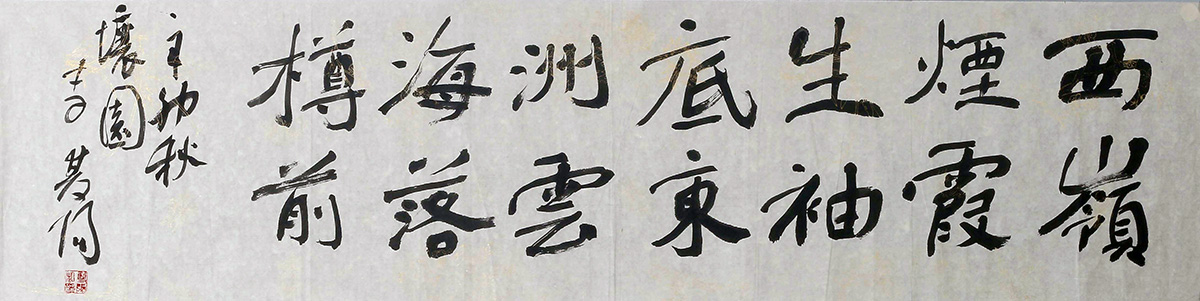 西嶺
煙霞
生袖
底東
洲雲
海落
樽前
辛卯秋
壤園
李